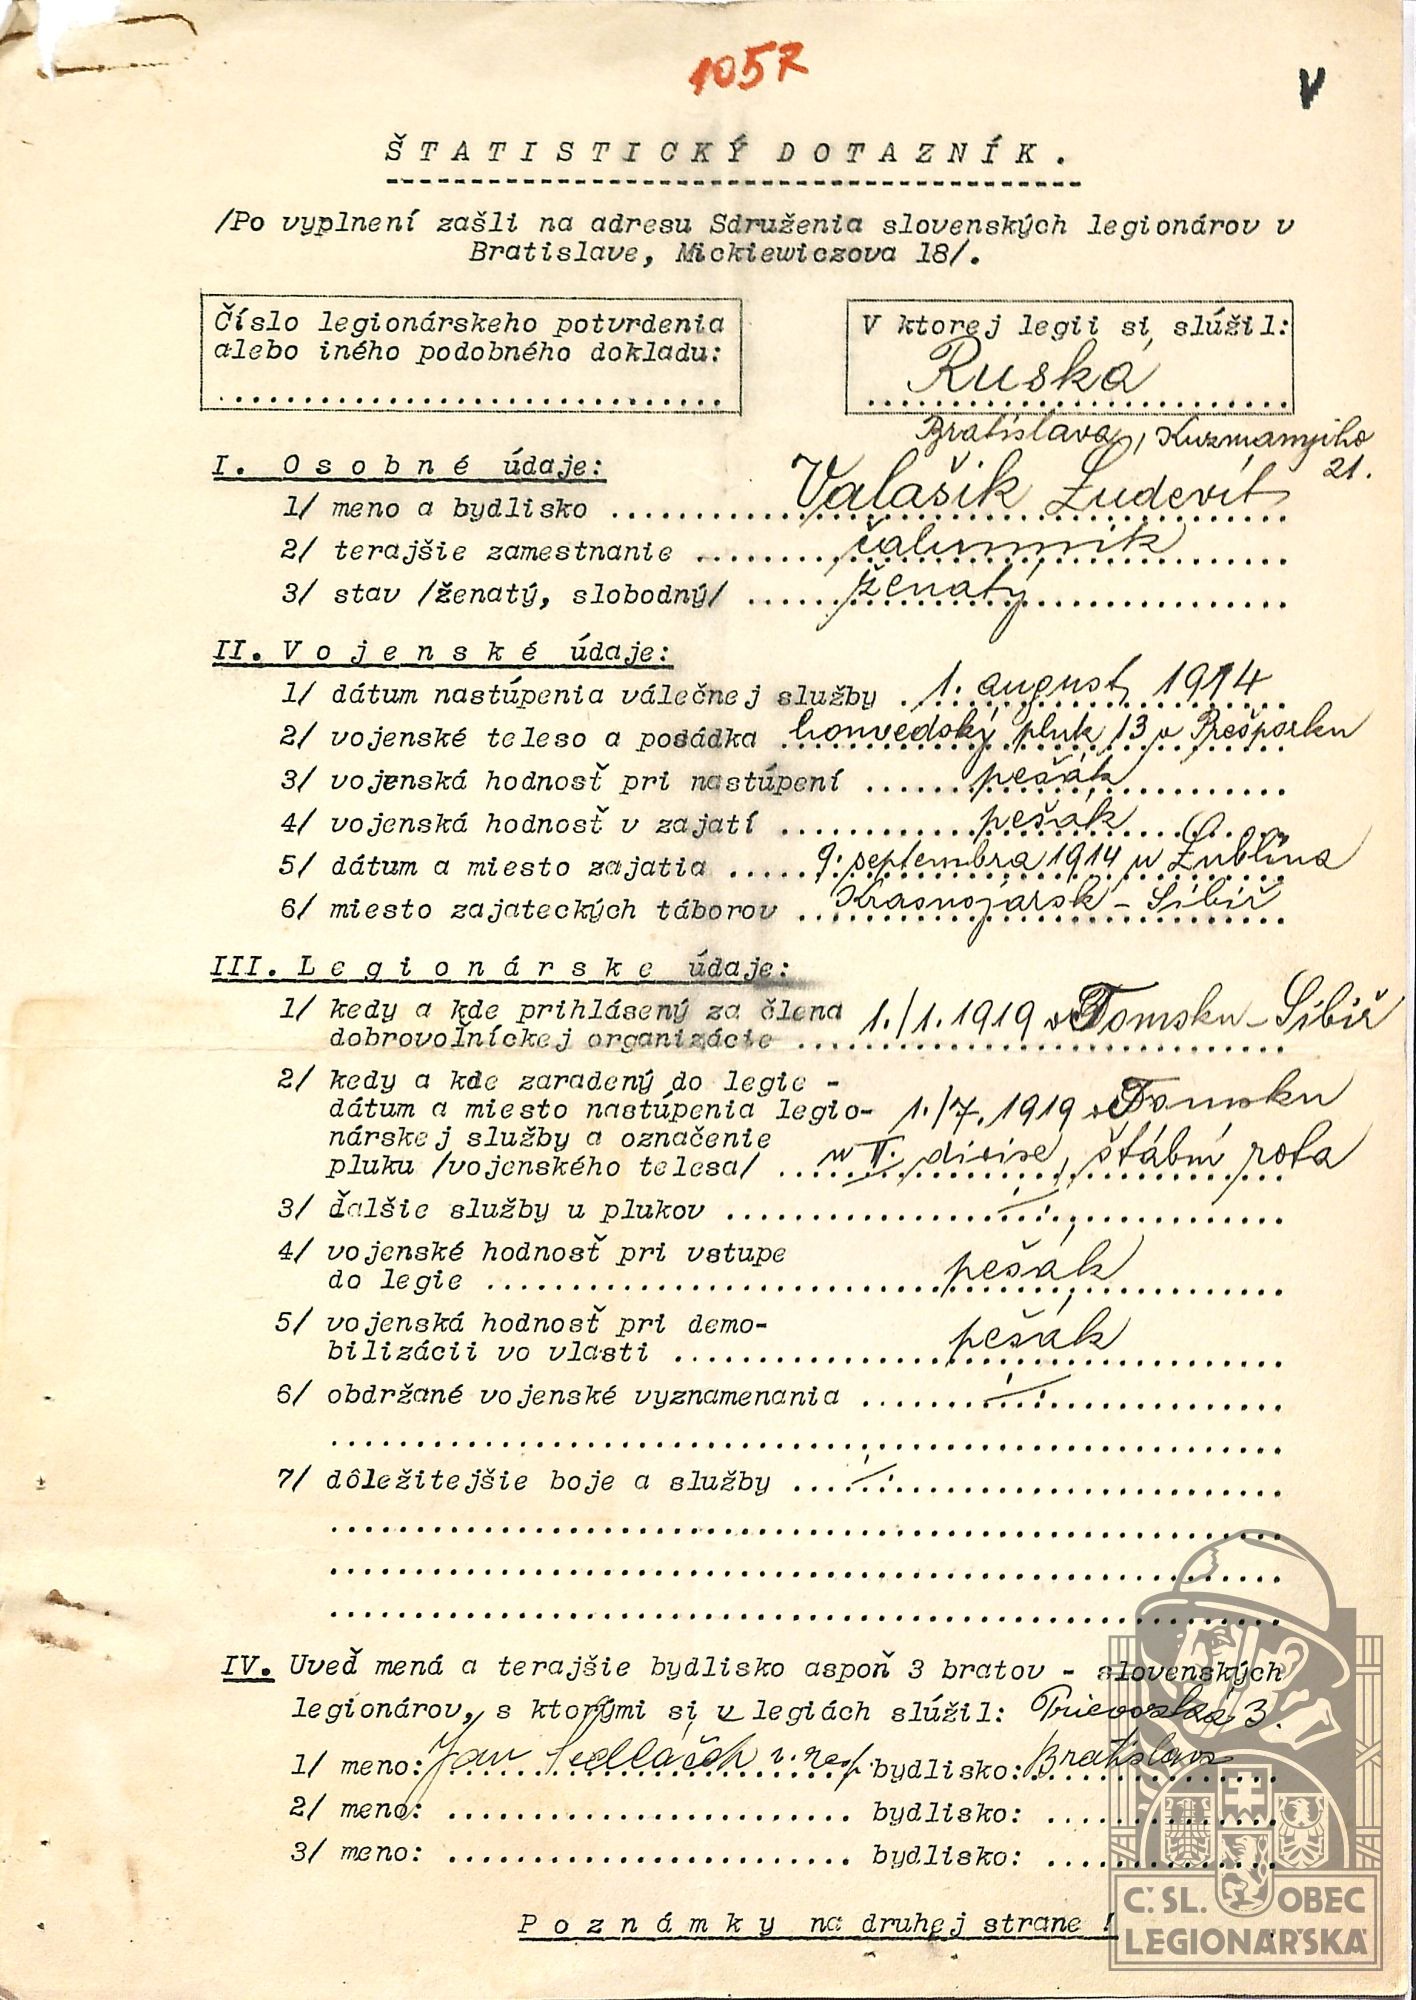 1057
V
ŠTATISTICKÝ DOTAZNÍK.
/Po vyplnení zašli na adresu Sdruženia slovenských legionárov v
Bratislave, Mickiewiczova 18/.
Číslo legionárskeho potvrdenia
alebo iného podobného dokladu:
V ktorej legii si slúžil:
Ruská
Bratislava, Kuzmanyiho
21.
I. Osobné údaje:
1/ meno a bydlisko Valašik Ľudevít
2/ terajšie zamestnanie čalunník
3/ stav /ženatý, slobodný/ ženatý
II. Vojenské údaje:
1/ dátum nastúpenia válečnej služby 1. august 1914
2/ vojenské teleso a posádka honvedský pluk 13 v Prešporku
3/ vojenská hodnosť pri nastúpení pešák
4/ vojenská hodnosť v zajatí pešák
5/ dátum a miesto zajatia 9. septembra 1914 u Lublína
6/ miesto zajateckých táborov Krasnojarsk - Sibiř
III. Legionárske údaje:
1/ kedy a kde prihlásený za člena
dobrovoľníckej organizácie 1./1. 1919 v Tomsku - Sibiř
2/ kedy a kde zaradený do legie -
dátum a miesto nastúpenia legio- 1./7. 1919 v Tomsku
nárskej služby a označenie
pluku /vojenského telesa/ u II. divise, štábní rota
3/ ďalšie služby u plukov
4/ vojenské hodnosť pri vstupe
do legie pešák
5/ vojenská hodnosť pri demo-
bilizácii vo vlasti pešák
6/ obdržané vojenské vyznamenania
7/ dôležitejšie boje a služby
IV. Uveď mená a terajšie bydlisko aspoň 3 bratov - slovenských
legionárov, s ktorými si v legiách slúžil: 3.
1/ meno: Jan Sedláček bydlisko: Bratislava
2/ meno: bydlisko:
3/ meno: bydlisko:
Poznámky na druhej strane !
Č.SL. OBEC
LEGIONÁŘSKÁ